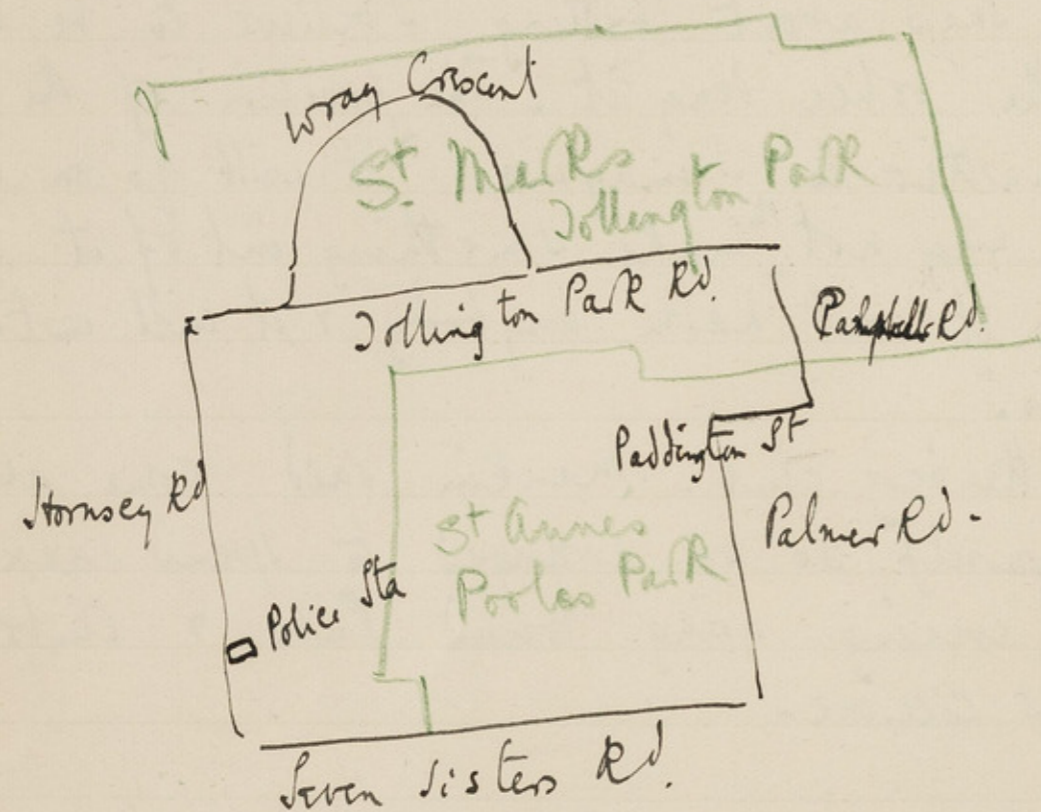 Wray Crescent
St. Marks
Tollington Park
Tollington Park Rd.
Campbell Rd.
Paddington St
Hornsey Rd
Palmer Rd.
St Annes
Pooles Park
Police Sta
Seven Sisters Rd.